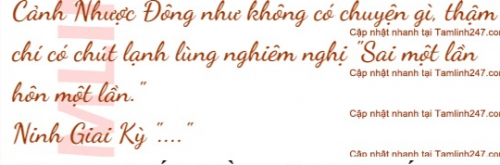 Cảnh Nhược Đông như không có chuyện gì, thậm
Cập nhật nhanh tại Tamlinh247.co
chí có chút lạnh lùng nghiêm nghị "Sai một lần
Cập nhật nhanh tại Tamlinh247.co
hôn một lần."
Cập nhật nhanh tại Tamlinh247.co
Ninh Giai Kỳ "...."
Cập nhật nhanh tại Tamlinh247.co